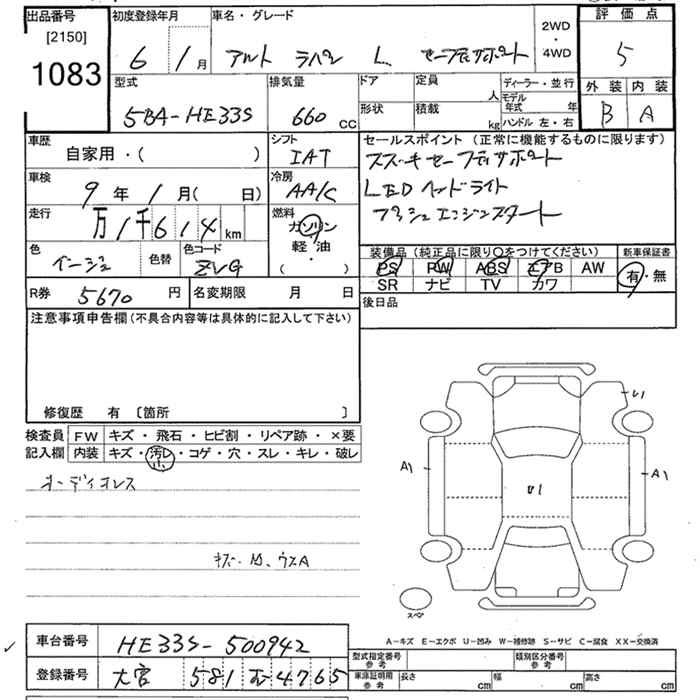 出品番号 初度登録年月 車名・グレード 2WD・4WD 評価点
[2150] 1083
6 / 1月 アルト ラパン L セーフティサポート 5
型式 排気量 ドア 定員 人 ディーラー・並行 外装 内装
5BA-HE33S 660 CC 形状 積載 kg モデル年式 年 ハンドル 左・右 B A
車歴 シフト セールスポイント (正常に機能するものに限ります)
自家用・( ) IAT スズキセーフティサポート
車検 冷房 LEDヘッドライト
9年 1月( 日) AA/C プッシュエンジンスタート
走行 燃料
万1千614km ガソリン・軽油 ( )
色 色替 色コード 装備品 (純正品に限り○をつけてください) 新車保証書
ベージュ ZVG PS PW ABS エアB AW 有・無
SR ナビ TV カワ
R券 5670円 名変期限 月 日 後日品
注意事項申告欄 (不具合内容等は具体的に記入して下さい)
修復歴 有 〔箇所 〕
検査員 FW キズ・飛石・ヒビ割・リペア跡・×要
記入欄 内装 キズ・汚レ・コゲ・穴・スレ・キレ・破レ
小
オーディオレス
キズ・凹、ウスA
U1
A1 U1 A1
スペア
A-キズ E-エクボ U-凹み W-補修跡 S-サビ C-腐食 XX-交換済
車台番号 HE33S-500942
型式指定番号 参考 類別区分番号 参考
登録番号 大宮 581 4765
車庫証明用 参考 長さ cm 幅 cm 高さ cm